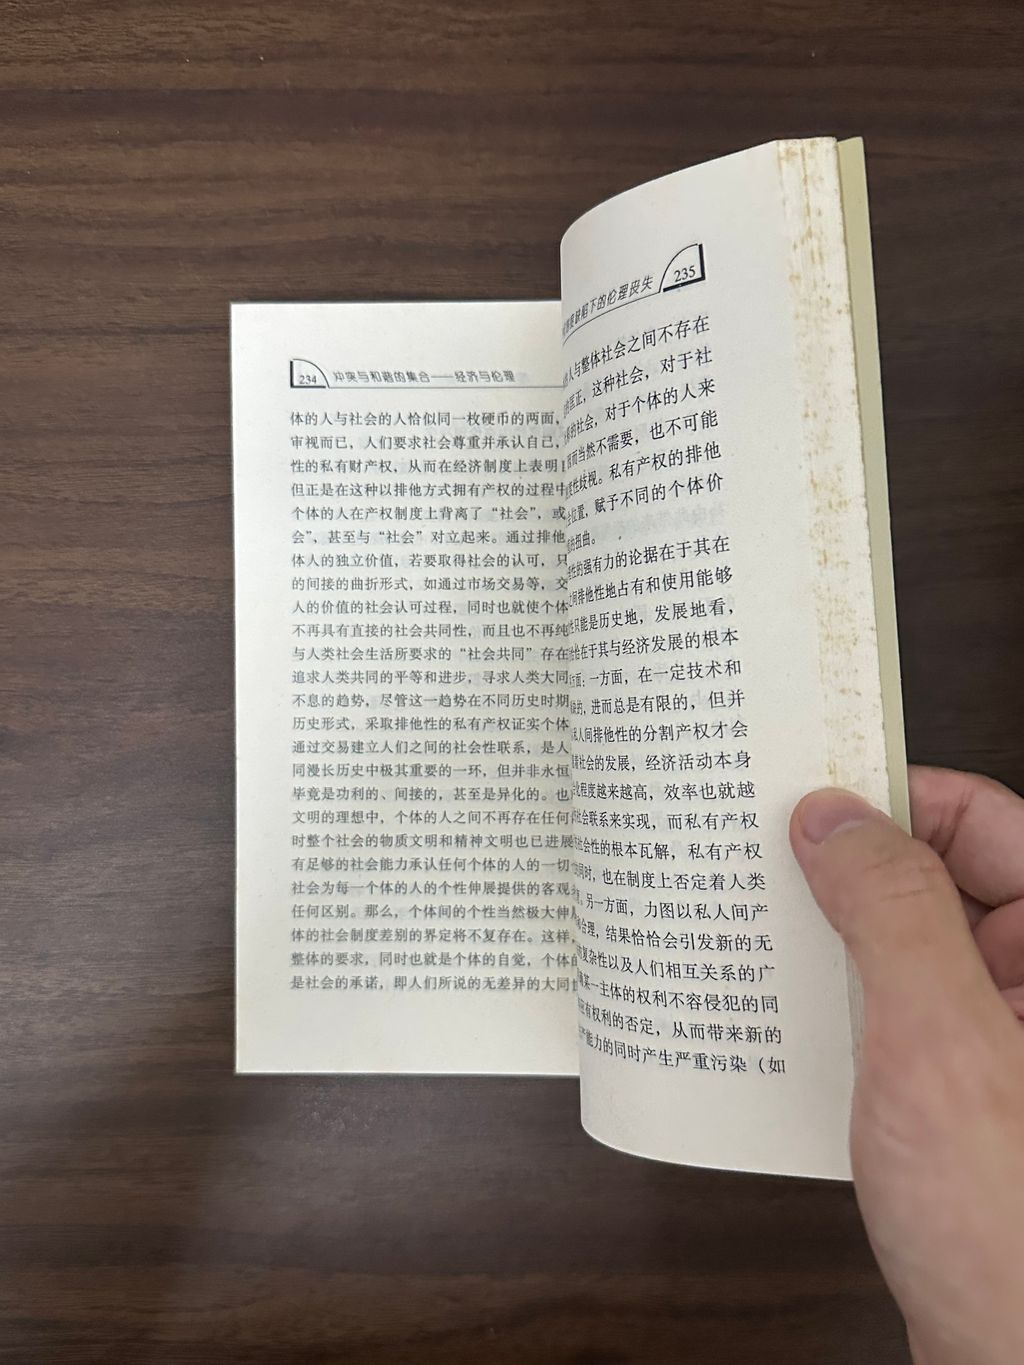 234 冲突与和谐的集合——经济与伦理
体的人与社会的人恰似同一枚硬币的两面，
审视而已，人们要求社会尊重并承认自己，
性的私有财产权，从而在经济制度上表明
但正是在这种以排他方式拥有产权的过程中
个体的人在产权制度上背离了“社会”，或
会”，甚至与“社会”对立起来。通过排他
体人的独立价值，若要取得社会的认可，只
的间接的曲折形式，如通过市场交易等，交
人的价值的社会认可过程，同时也就使个体
不再具有直接的社会共同性，而且也不再纯
与人类社会生活所要求的“社会共同”存在
追求人类共同的平等和进步，寻求人类大同
不息的趋势，尽管这一趋势在不同历史时期
历史形式，采取排他性的私有产权证实个体
通过交易建立人们之间的社会性联系，是人
同漫长历史中极其重要的一环，但并非永恒
毕竟是功利的、间接的，甚至是异化的。也
文明的理想中，个体的人之间不再存在任何
时整个社会的物质文明和精神文明也已进展
有足够的社会能力承认任何个体的人的一切
社会为每一个体的人的个性伸展提供的客观
任何区别。那么，个体间的个性当然极大伸
体的社会制度差别的界定将不复存在。这样，
整体的要求，同时也就是个体的自觉，个体
是社会的承诺，即人们所说的无差异的大同
缺陷下的伦理丧失 235
人与整体社会之间不存在
匡正，这种社会，对于社
的社会，对于个体的人来
而当然不需要，也不可能
度性歧视。私有产权的排他
位置，赋予不同的个体价
的扭曲。
性的强有力的论据在于其在
之间排他性地占有和使用能够
性只能是历史地，发展地看，
恰在于其与经济发展的根本
方面：一方面，在一定技术和
的，进而总是有限的，但并
私人间排他性的分割产权才会
着社会的发展，经济活动本身
化程度越来越高，效率也就越
社会联系来实现，而私有产权
社会性的根本瓦解，私有产权
的同时，也在制度上否定着人类
。另一方面，力图以私人间产
合理，结果恰恰会引发新的无
复杂性以及人们相互关系的广
某一主体的权利不容侵犯的同
有权利的否定，从而带来新的
产能力的同时产生严重污染（如